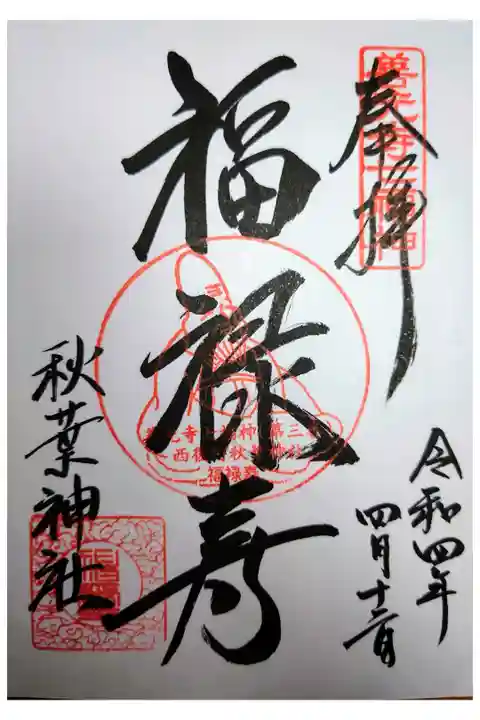 善光寺七福神
奉拝
福禄寿
善光寺七福神 第三番
西後町秋葉神社
福禄寿
令和四年
四月十二日
秋葉神社